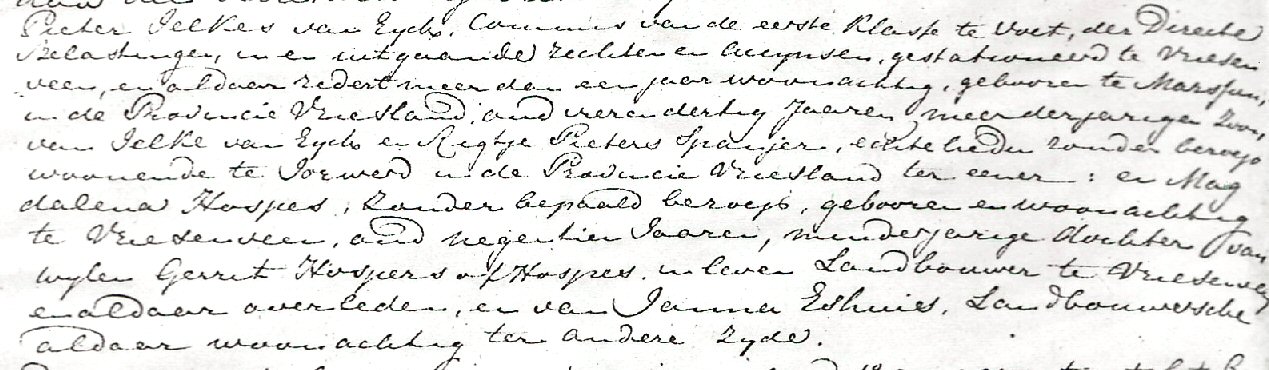 Pieter Jelkes van Eyck, Commies van de eerste Klasse te voet, der Directe
Belastingen, in en uitgaande rechten en accynsen, gestationeerd te Vriesen
veen, en aldaar zedert meer dan een jaar woonachtig, gebooren te Marssum,
in de Provincie Vriesland, oud vierendertig Jaaren, meerderjarigen Zoon,
van Jelke van Eyck en Rigtje Pieters Spanjer, echtelieden zonder beroep
woonende te Jorwerd in de Provincie Vriesland ter eener : en Mag
dalena Hospes, Zonder bepaald beroep, gebooren en woonachtig
te Vriesenveen, oud negentien Jaaren, minderjarige dochter van
wylen Gerrit Hospers of Hospes, in leven Landbouwer te Vriesenveen
en aldaar overleden, en van Janna Eshuis, Landbouwersche
aldaar woonachtig ter andere zyde.